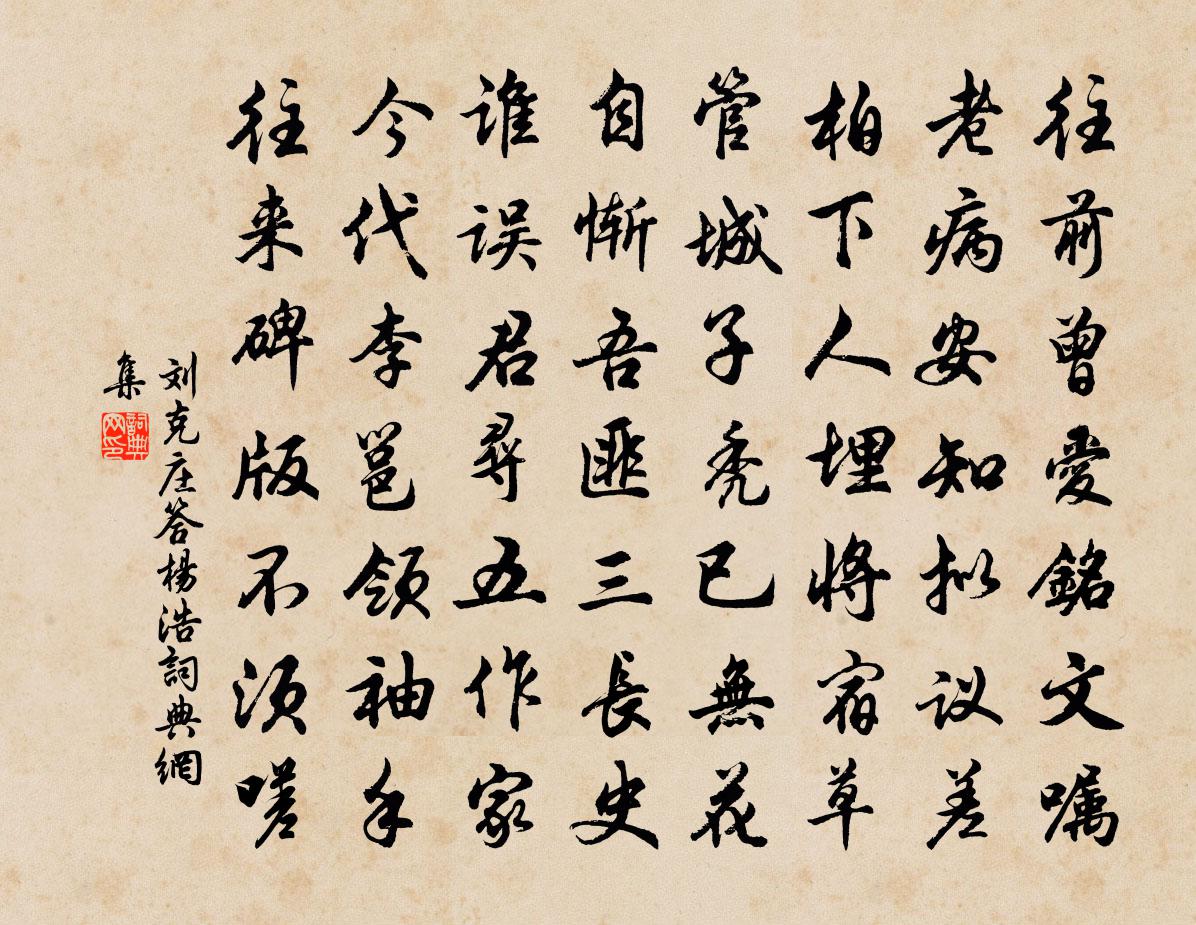 往前曾愛銘文嘱
老病安知拟议差
柏下人埋将宿草
管城子秃已無花
自惭吾匪三長史
谁误君尋五作家
今代李邕领袖手
往来碑版不须嗟
刘克庄答楊浩詞典網
集
詞典网印